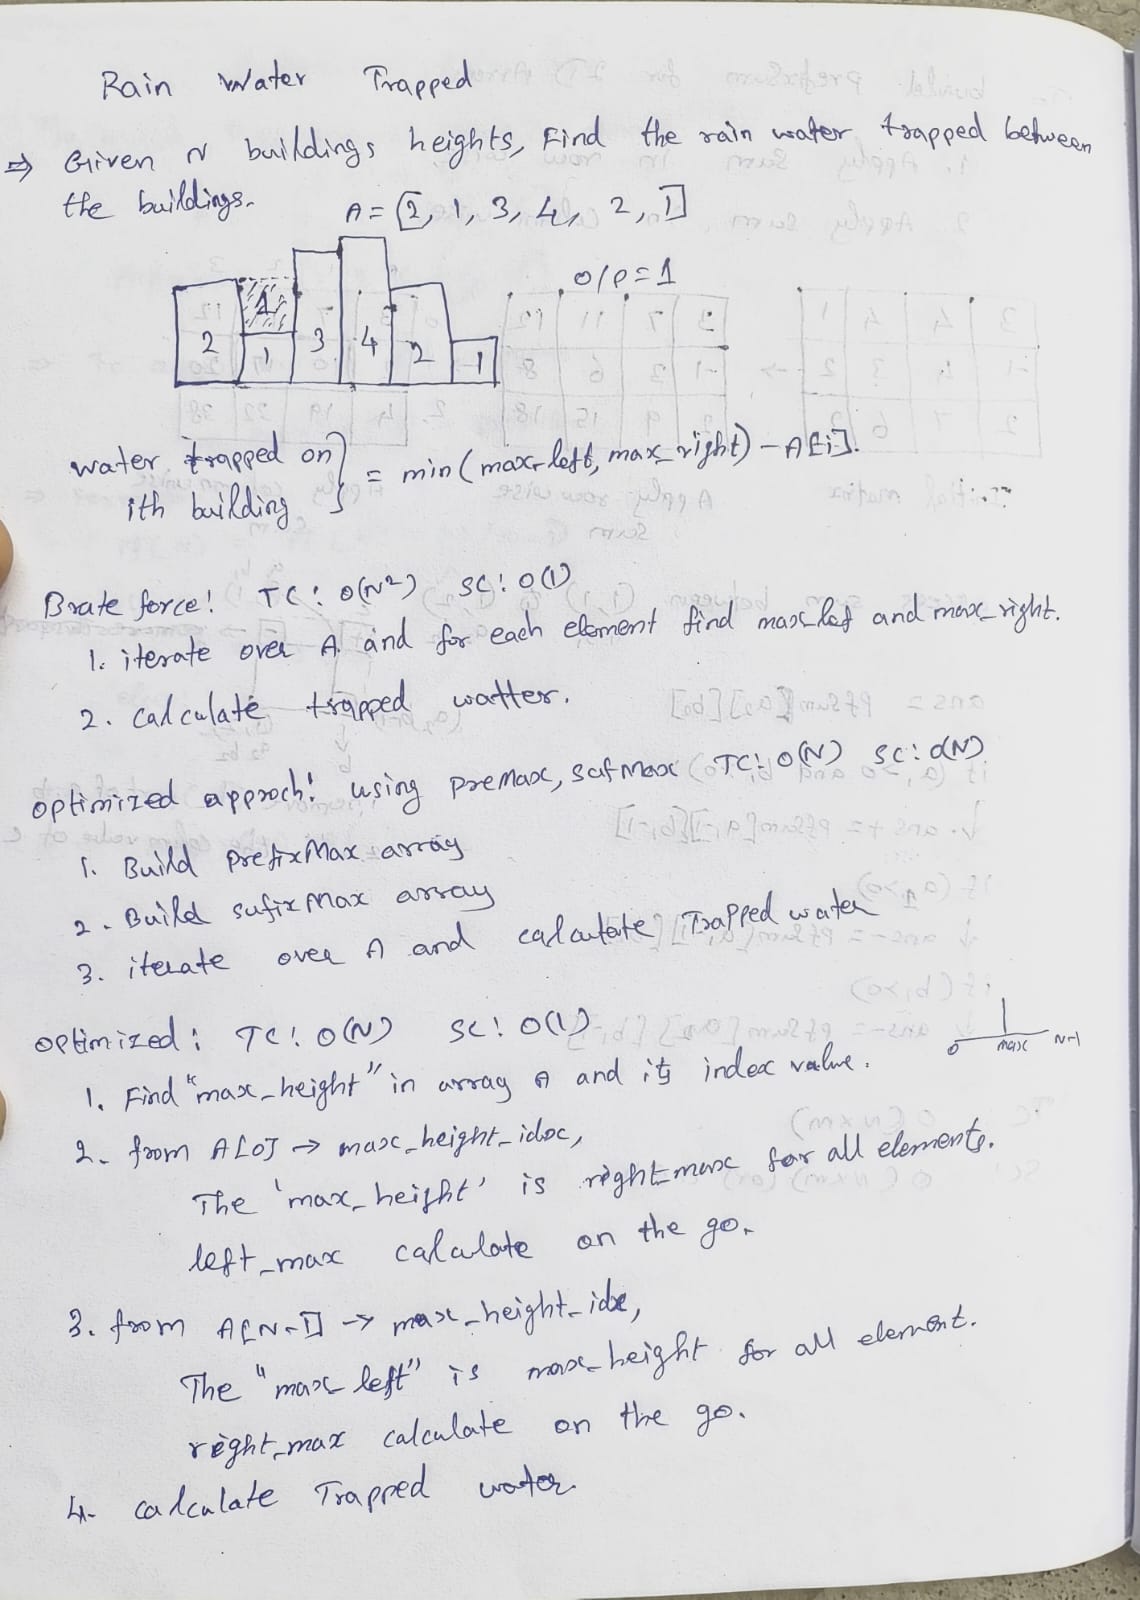 Rain Water Trapped
⇒ Given N buildings heights, Find the rain water trapped between
the buildings.
A = [2, 1, 3, 4, 2, 1]
o/p = 1
2 1 1 3 4 2 1
water trapped on
ith building } = min(max_left, max_right) - A[i].
Brute force! TC: O(N²) SC: O(1)
1. iterate over A and for each element find max_lef and max_right.
2. calculate trapped watter.
optimized approch! using premax, sufmax TC: O(N) SC: O(N)
1. Build prefixMax array
2. Build sufixMax array
3. iterate over A and calculate Trapped water
optimized: TC: O(N) SC: O(1)
0 max N-1
1. Find "max_height" in array A and its index value.
2. from A[0] → max_height_idx,
The 'max_height' is right_max for all elements.
left_max calculate on the go.
3. from A[N-1] → max_height_idx,
The "max_left" is max_height for all element.
right_max calculate on the go.
4. calculate Trapped water.